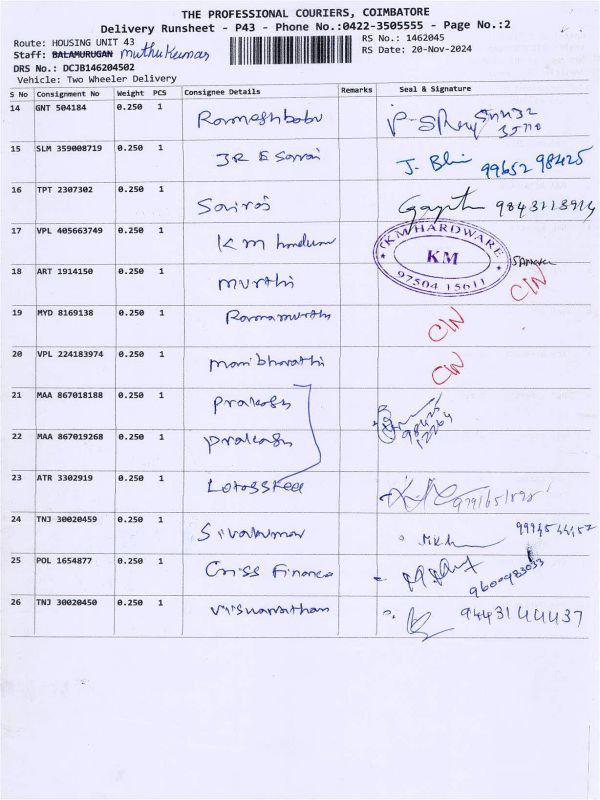 THE PROFESSIONAL COURIERS, COIMBATORE
Delivery Runsheet - P43 - Phone No.:0422-3505555 - Page No.:2
Route: HOUSING UNIT 43
RS No.: 1462045
Staff: BALAMURUGAN Muthukumar
RS Date: 20-Nov-2024
DRS No.: DCJB146204502
Vehicle: Two Wheeler Delivery
S No Consignment No Weight PCS Consignee Details Remarks Seal & Signature
14 GNT 504184 0.250 1 Rameshbabu
15 SLM 359008719 0.250 1 99652 98425
16 TPT 2307302 0.250 1 Sairaj
17 VPL 405663749 0.250 1 KM
KM HARDWARE
KM
97504 15611
18 ART 1914150 0.250 1 Murthi
19 MYD 8169138 0.250 1 Ramamurthi
20 VPL 224183974 0.250 1 Manibharathi
21 MAA 867018188 0.250 1 Prakash
22 MAA 867019268 0.250 1 Prakash
23 ATR 3302919 0.250 1
24 TNJ 30020459 0.250 1 Sivakumar
25 POL 1654877 0.250 1 Criss Finance
26 TNJ 30020450 0.250 1 Viswanathan 9443144437